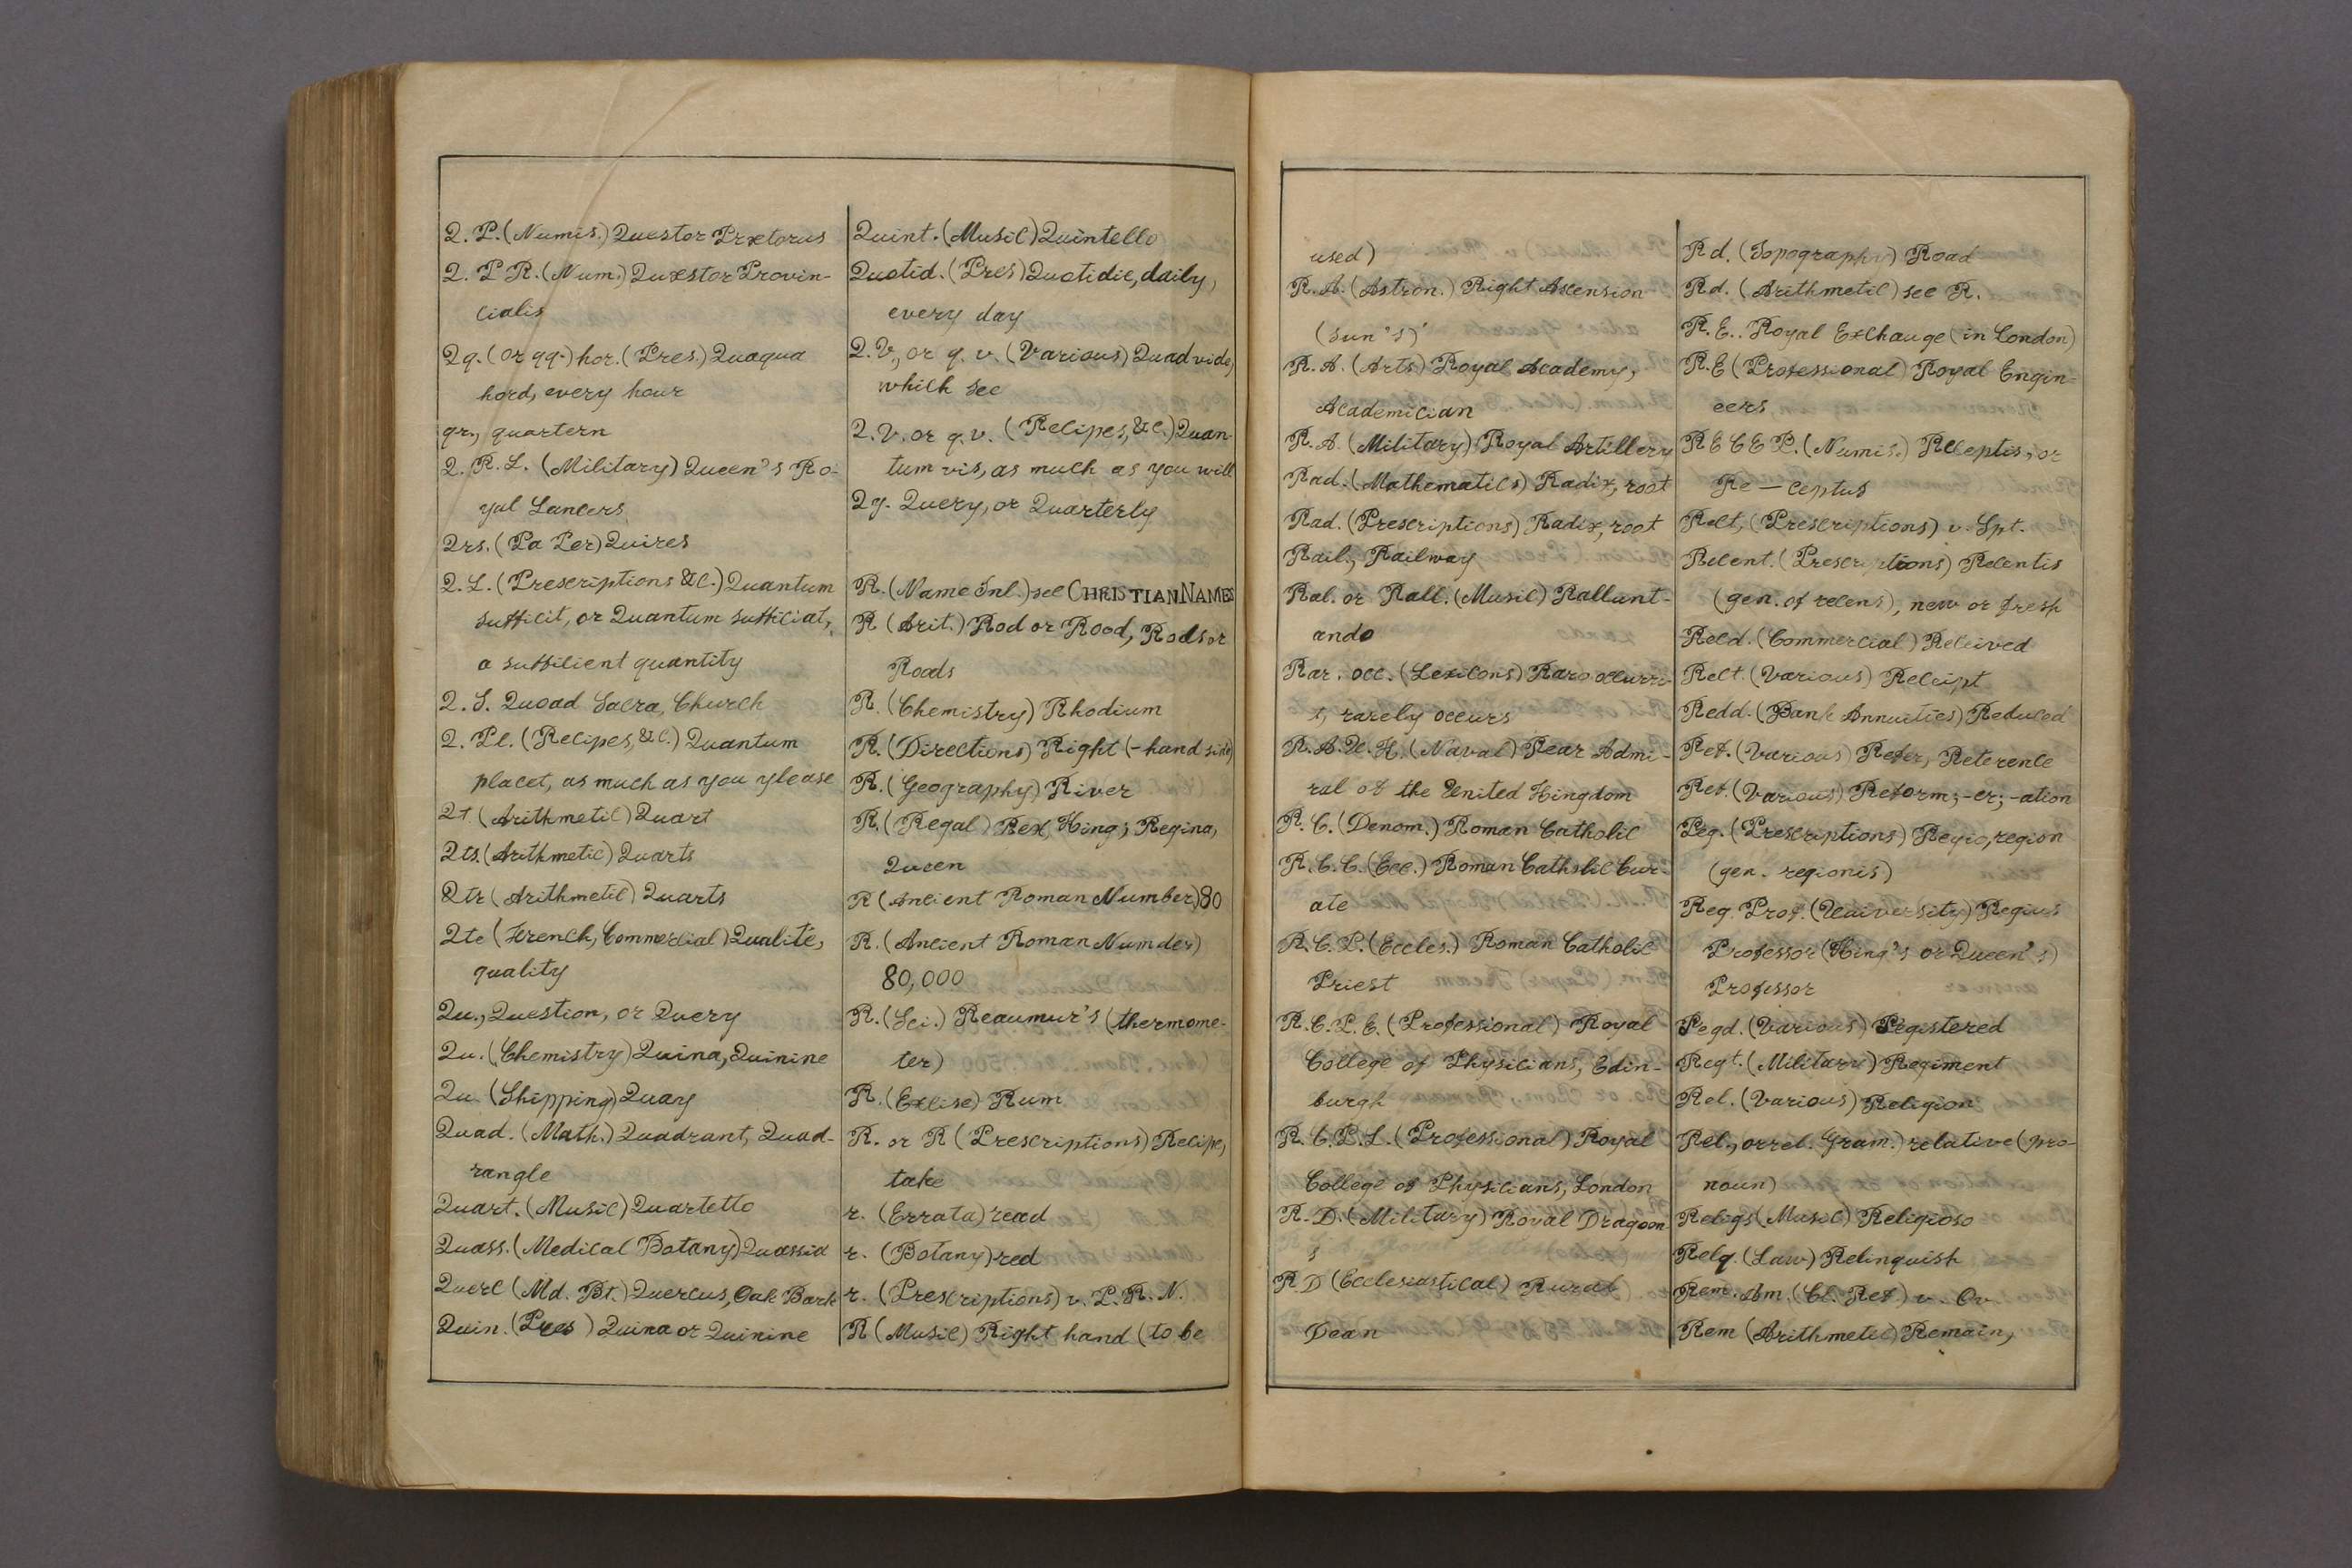 Q. P. (Numis.) Questor Prætorus
Q. P R. (Num.) Quæstor Provin-
cialis
Qq. (or qq.) hor. (Pres.) Quaqua
hord, every hour
qr., quartern
Q. R. L. (Military) Queen's Ro-
yal Lancers
Qrs. (Pa Per) Quires
Q. L. (Prescriptions &c.) Quantum
sufficit, or Quantum sufficiat,
a sufficient quantity
Q. S. Quoad Sacra, Church
Q. Pl. (Recipes, &c.) Quantum
placet, as much as you please
Qt (Arithmetic) Quart
Qts. (Arithmetic) Quarts
Qtr (Arithmetic) Quarts
Qte (French, Commercial) Qualité,
quality
Qu., Question, or Query
Qu. (Chemistry) Quina, Quinine
Qu. (Shipping) Quay
Quad. (Math.) Quadrant, Quad-
rangle
Quart. (Music) Quartetto
Quass. (Medical Botany) Quassia
Querc (Md. Bt.) Quercus, Oak Bark
Quin. (Pres) Quina or Quinine
Quint. (Music) Quintello
Quotid. (Pres) Quotidie, daily,
every day
Q. V., or q. v. (Various) Quad vide,
which see
Q. V. or q. v. (Recipes, &c.) Quan
tum vis, as much as you will
Qy. Query, or Quarterly
R. (Name Inl.) see CHRISTIAN NAMES
R (Arit.) Rod or Rood, Rods or
Roods
R. (Chemistry) Rhodium
R. (Directions) Right (-hand side)
R. (Geography) River
R. (Regal) Rex, King; Regina,
Queen
R (Ancient Roman Number) 80
R. (Ancient Roman Numder)
80,000
R. (Sci.) Reaumur's (thermome-
ter)
R. (Excise) Rum
R. or R (Prescriptions) Recipe,
take
r. (Errata) read
r. (Botany) red
r. (Prescriptions) v. P. R. N.
R (Music) Right hand (to be
used)
R. A. (Astron.) Right Ascension
(sun's)
R. A. (Arts) Royal Academy,
Academician
R. A. (Military) Royal Artillery
Rad. (Mathematics) Radix, root
Rad. (Prescriptions) Radix, root
Rail., Railway
Ral. or Rall. (Music) Rallunt-
ando
Rar. occ. (Lexicons) Raro occurri-
t, rarely occurs
R. A. U. K. (Naval) Rear Admi-
ral of the United Kingdom
R. C. (Denom.) Roman Catholic
R. C. C. (Ecc.) Roman Catholic Cur-
ate
R. C. P. (Eccles.) Roman Catholic
Priest
R. C. P. E. (Professional) Royal
College of Physicians, Edin-
burgh
R. C. P. L. (Professional) Royal
College of Physicians, London
R. D. (Military) Royal Dragoon
s
R. D (Ecclesiastical) Rural
Dean
Rd. (Topography) Road
Rd. (Arithmetic) see R.
R. E.. Royal Exchauge (in London)
R. E (Professional) Royal Engin-
eers
R E C E P. (Numis.) Receptis, or
Re — ceptus
Rect, (Prescriptions) v. Spt.
Recent. (Prescriptions) Recentis
(gen. of recens), new or fresh
Recd. (Commercial) Received
Rect. (Various) Receipt
Redd. (Bank Annuities) Reduced
Ref. (Various) Refer, Reference
Ref. (Various) Reform; -er; -ation
Reg. (Prescriptions) Regio, region
(gen. regionis)
Reg. Prof. (University) Regius
Professor (King's or Queen's)
Professor
Regd. (Various) Registered
Regt. (Military) Regiment
Rel. (Various) Religion
Rel., or rel. Gram.) relative (pro-
noun)
Religs (Music) Religioso
Relq. (Law) Relinquish
Rem. Am. (Cl. Ref) v. Ov.
Rem (Arithmetic) Remain,